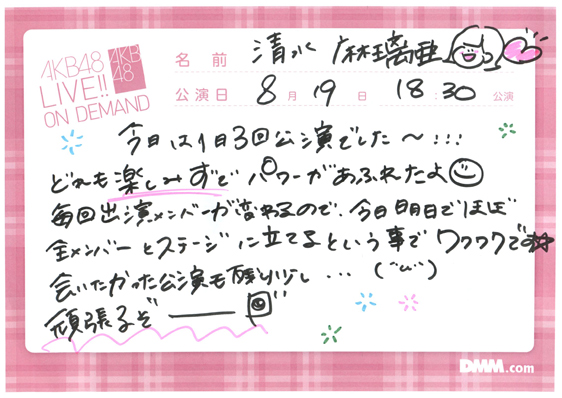 AKB48
LIVE!!
ON DEMAND
AKB
48
名前 清水 麻璃亜
公演日 8月19日 18:30 公演
今日は1日3回公演でした〜!!!
どれも楽しみすぎてパワーがあふれたよ
毎回出演メンバーが変わるので、今日明日でほぼ
全メンバーとステージに立てるという事でワクワクです☆
会いたかった公演も残り少し...(´ω`)
頑張るぞ――
DMM.com